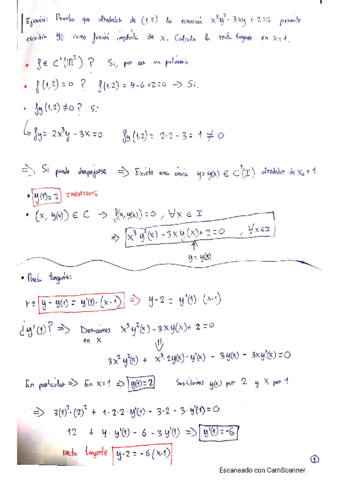 Ejercicio: Prueba que alrededor de (1,2) la ecuación x³y² - 3xy + 2 = 0 permite
escribir y como función implícita de x. Calcula la recta tangente en x=1.
• f ∈ C¹(ℝ²) ? Si, por ser un polinomio
• f(1,2) = 0 ? f(1,2) = 4-6+2 = 0 → Si.
• fy(1,2) ≠ 0 ? Si
↳ fy = 2x³y - 3x = 0 fy(1,2) = 2·2 - 3 = 1 ≠ 0
⇒ Si puede despejarse ⇒ Existe una única y = y(x) ∈ C¹(I) alrededor de x₀ = 1
• y(1) = 2 IMPORTANTE
• (x, y(x)) ∈ C → f(x,y(x)) = 0, ∀x ∈ I
⇒ x³y²(x) - 3xy(x) + 2 = 0, ∀x∈I
y = y(x)
• Recta tangente:
r ≡ y - y(1) = y'(1)·(x-1) ⇒ y-2 = y'(1)·(x-1)
¿y'(1)? ⇒ Derivamos x³y²(x) - 3xy(x) + 2 = 0
en x ⇓
3x²y²(x) + x³·2y(x)·y'(x) - 3y(x) - 3xy'(x) = 0
En particular ⇒ En x=1 ⇒ y(1)=2 Sustituimos y(x) por 2 y x por 1
⇒ 3(1)²·(2)² + 1·2·2·y'(1) - 3·2 - 3·y'(1) = 0
12 + 4·y'(1) - 6 - 3y'(1) ⇒ y'(1) = -6
recta tangente y-2 = -6(x-1)
1
Escaneado con CamScanner